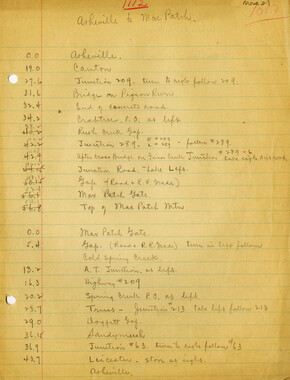 1112
Asheville to Max Patch.
0.0 Asheville.
19.0 Canton
27.6 Junction 209. turn to right follow 209.
31.6 Bridge on Pigeon River
32.4 End of concrete road
34.2 Crabtree P.O. as left
Rush Creek Gap.
42.2 Junction 289. - follow #289
42.9 After cross Bridge on Junction take right dirt road.
Junction Road - take Left.
Gap (Road & R.R. Grade)
Max Patch Gate
56.8 Top of Max Patch Mtn
0.0 Max Patch Gate.
5.4 Gap. (Road & R.R. Grade) turn in left follow
Cold Spring Creek.
13.2 A.T. Junction, as left.
16.3 Highway #209
20.2 Spring Creek P.O. as left
23.7 Trust - Junction #213 take left follow 213
29.0 Doggett Gap
Sandymush
Junction #63. turn to right follow #63
43.7 Leicester - store as right.
Asheville.